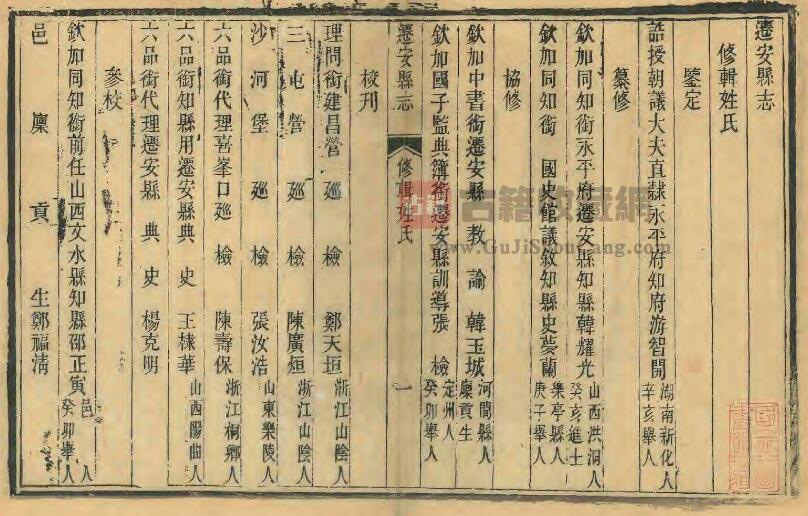 遷安縣志
修輯姓氏
鑒定
誥授朝議大夫直隸永平府知府游智開 湖南新化人 辛亥舉人
纂修
欽加同知銜永平府遷安縣知縣韓耀光 山西洪洞人 癸亥進士
欽加同知銜 國史館議敘知縣史夢蘭 樂亭縣人 庚子舉人
協修
欽加中書銜遷安縣教諭韓玉城 河間縣人 廩貢生
欽加國子監典簿銜遷安縣訓導張檢 定州人 癸卯舉人
遷安縣志 修輯姓氏 一
校刊
理問銜建昌營廵檢鄭天垣 浙江山陰人
三屯營廵檢陳廣烜 浙江山陰人
沙河堡廵檢張汝浩 山東樂陵人
六品銜代理喜峯口廵檢陳壽保 浙江桐鄉人
六品銜知縣用遷安縣典史王棣華 山西陽曲人
六品銜代理遷安縣典史楊克明
參校
欽加同知銜前任山西文水縣知縣邵正寅 邑人 癸卯舉人
邑廩貢生鄭福清
古籍收藏網
www.GuJiShouCang.com